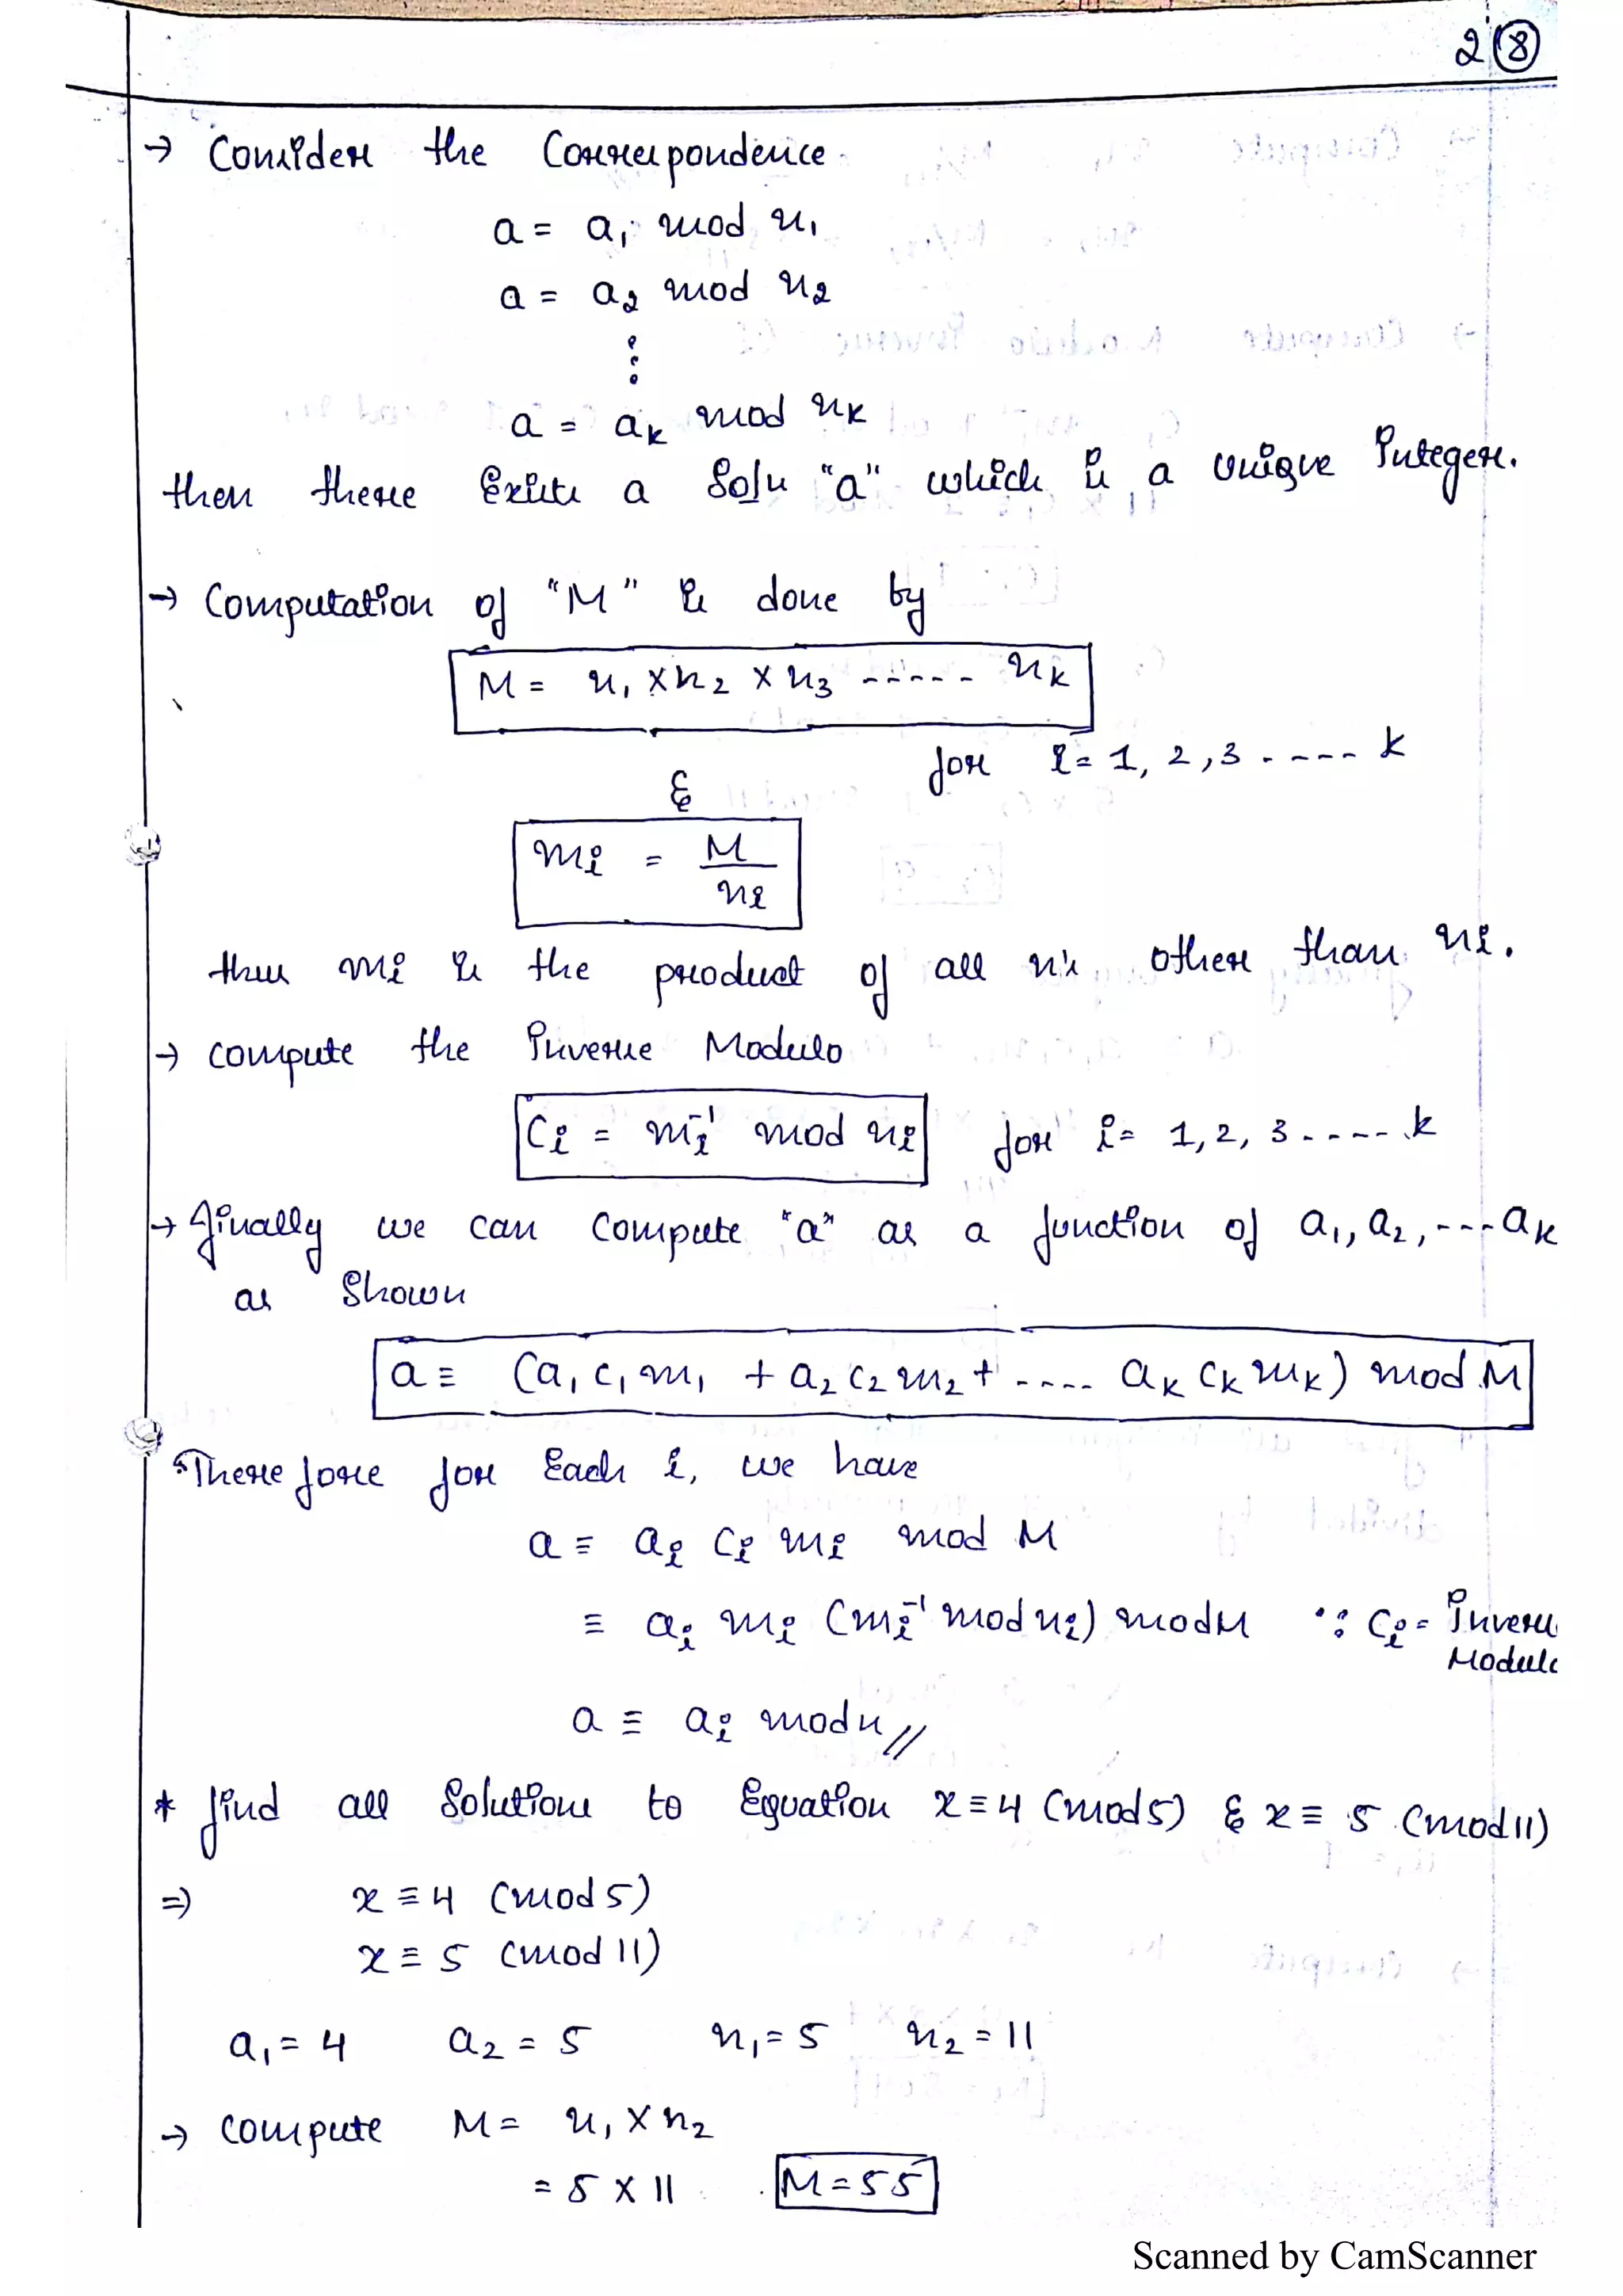 2 8
→ Consider the Correspondence
a = a₁ mod n₁
a = a₂ mod n₂
⋮
a = aₖ mod nₖ
then there Exists a Solⁿ "a" which is a unique Integer.
→ Computation of "M" is done by
M = n₁ × n₂ × n₃ ----- nₖ
for i = 1, 2, 3 ----- k
&
mᵢ = M/nᵢ
thus mᵢ is the product of all n's other than nᵢ.
→ compute the Inverse Modulo
Cᵢ = mᵢ⁻¹ mod nᵢ for i = 1, 2, 3 ----- k
→ finally we can Compute "a" as a function of a₁, a₂, --- aₖ
as Shown
a ≡ (a₁ c₁ m₁ + a₂ c₂ m₂ + ---- aₖ cₖ mₖ) mod M
Therefore for Each i, we have
a ≡ aᵢ Cᵢ mᵢ mod M
≡ aᵢ mᵢ (mᵢ⁻¹ mod nᵢ) mod M ∵ Cᵢ = Inverse
Modulo
a ≡ aᵢ mod n //
* find all Solutions to Equation x ≡ 4 (mod 5) & x ≡ 5 (mod 11)
⇒ x ≡ 4 (mod 5)
x ≡ 5 (mod 11)
a₁ = 4 a₂ = 5 n₁ = 5 n₂ = 11
→ compute M = n₁ × n₂
= 5 × 11 M = 55
Scanned by CamScanner